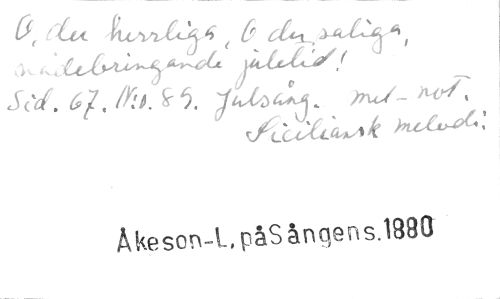 O, du herrliga, O du saliga,
nådebringande juletid!
Sid. 67. N:o. 89. Julsång. mel-not.
Siciliansk melodi.
Åkeson-L, påSångens.1880